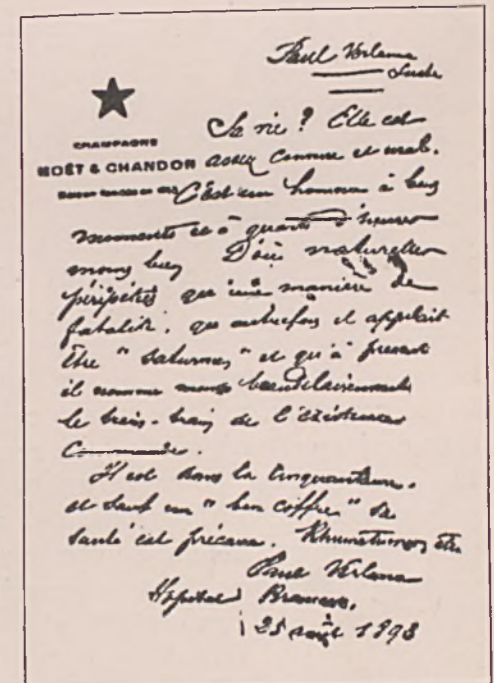 Paul Verlaine
Sa vie ? Elle est
CHAMPAGNE
MOËT & CHANDON
assez connue et mal.
C'est un homme à bons
moments et à quarts d'heure
moins bons D'où naturelles
péripéties qu'une manière de
fatalité, qu'autrefois il appelait
être " saturnien " et qu'à présent
il nomme moins baudelairiennement
le train-train de l'existence
Commande.
Il est dans la cinquantaine.
et sauf un " bon coffre " sa
santé est précaire. Rhumatismes, etc
Paul Verlaine
Hôpital Broussais.
25 août 1893